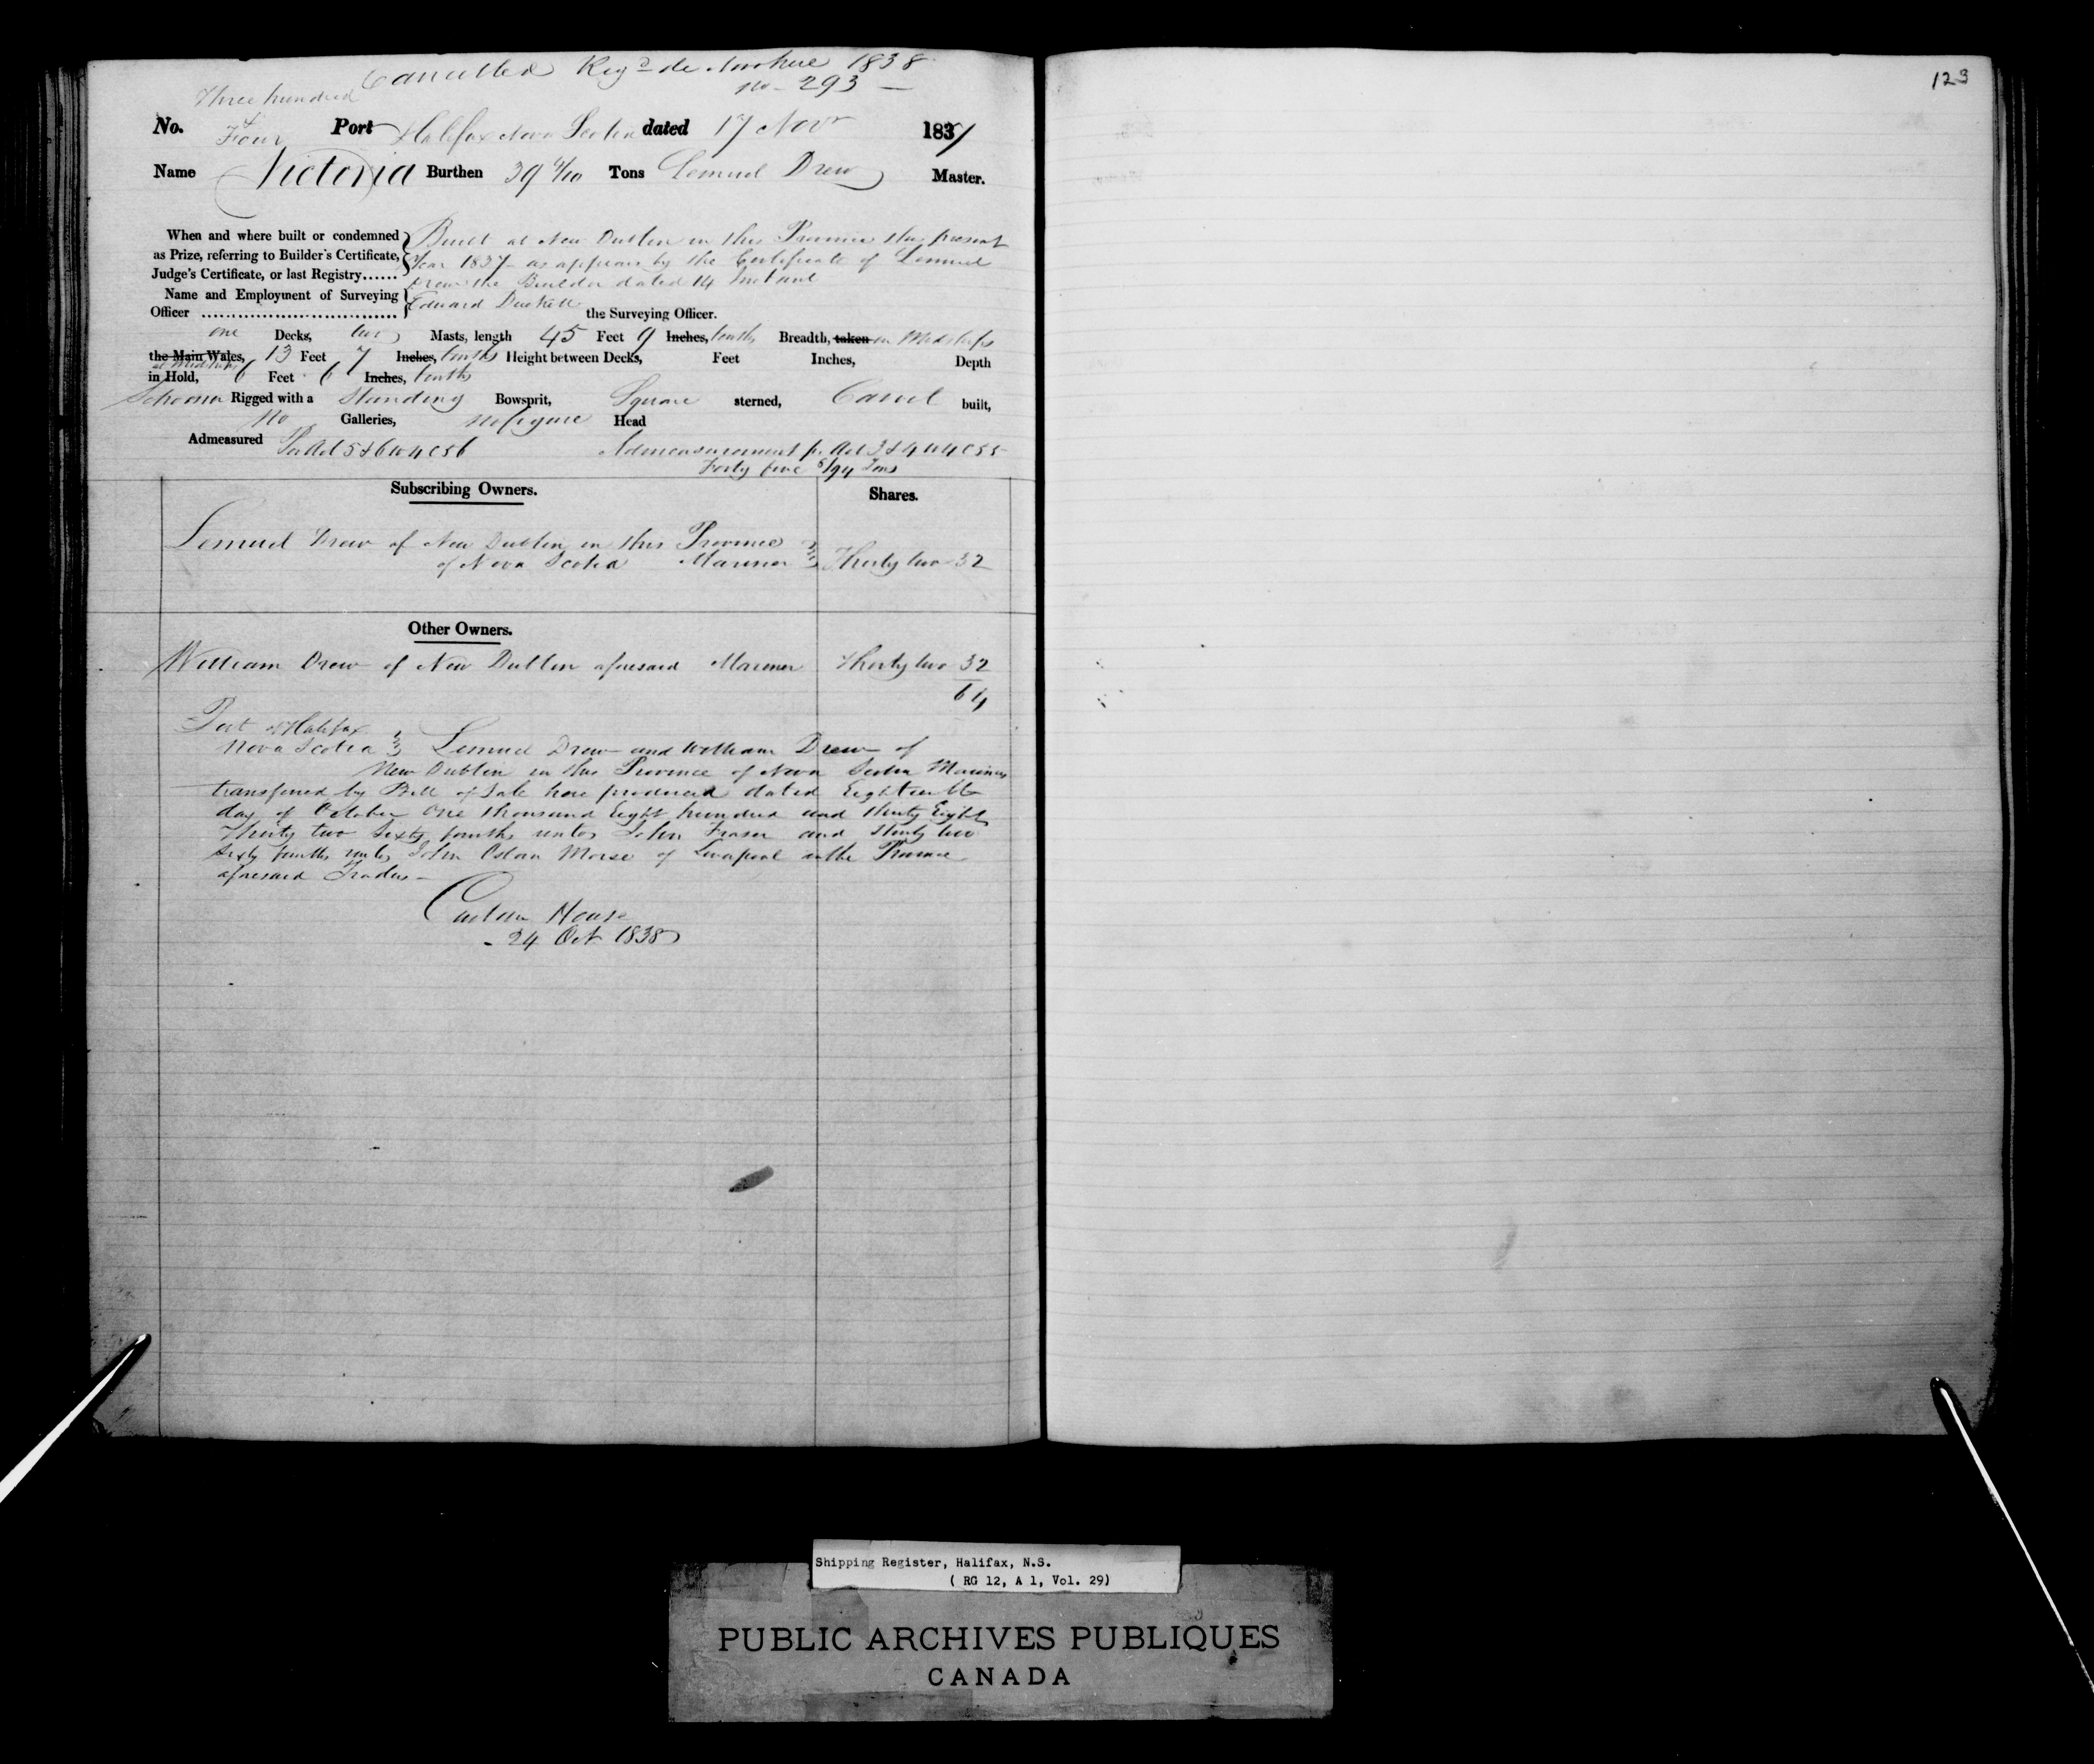 Cancelled Regd de Novo here 1838
no 293
Three hundred
& Four
No. Port Halifax Nova Scotia dated 17 Novr 1837
Name Victoria Burthen 39 4/10 Tons Lemuel Drew Master.
When and where built or condemned as Prize, referring to Builder's Certificate, Judge's Certificate, or last Registry......
Built at New Dublin in this Province this present
Year 1837 as appears by the Certificate of Lemuel
Drew the Builder dated 14 Instant
Name and Employment of Surveying Officer ................................ Edward Duckett the Surveying Officer.
one Decks, two Masts, length 45 Feet 9 Inches, tenths Breadth, taken in Midships
the Main Wales, 13 Feet 7 Inches, tenths Height between Decks, Feet Inches, Depth
at Midships
in Hold, 6 Feet 6 Inches, tenths
Schooner Rigged with a Standing Bowsprit, Square sterned, Carvel built,
No Galleries, no figure Head
Admeasured Per Act 5 & 6 W 4 C 56 Admeasurement pr Act 3 & 4 W 4 C 55
Forty five 5/94 Tons
Subscribing Owners. Shares.
Lemuel Drew of New Dublin in this Province
of Nova Scotia Mariner Thirty two 32
Other Owners.
William Drew of New Dublin aforesaid Mariner Thirty two 32
64
Port of Halifax
Nova Scotia Lemuel Drew and William Drew of
New Dublin in this Province of Nova Scotia Mariners
transferred by Bill of Sale here produced dated Eighteenth
day of October One thousand Eight hundred and thirty Eight
Thirty two Sixty fourths unto John Fraser and thirty two
Sixty fourths unto John Morse of Liverpool in the Province
aforesaid Traders
Custom House
24 Oct 1838
123
Shipping Register, Halifax, N.S.
( RG 12, A 1, Vol. 29)
PUBLIC ARCHIVES PUBLIQUES
CANADA